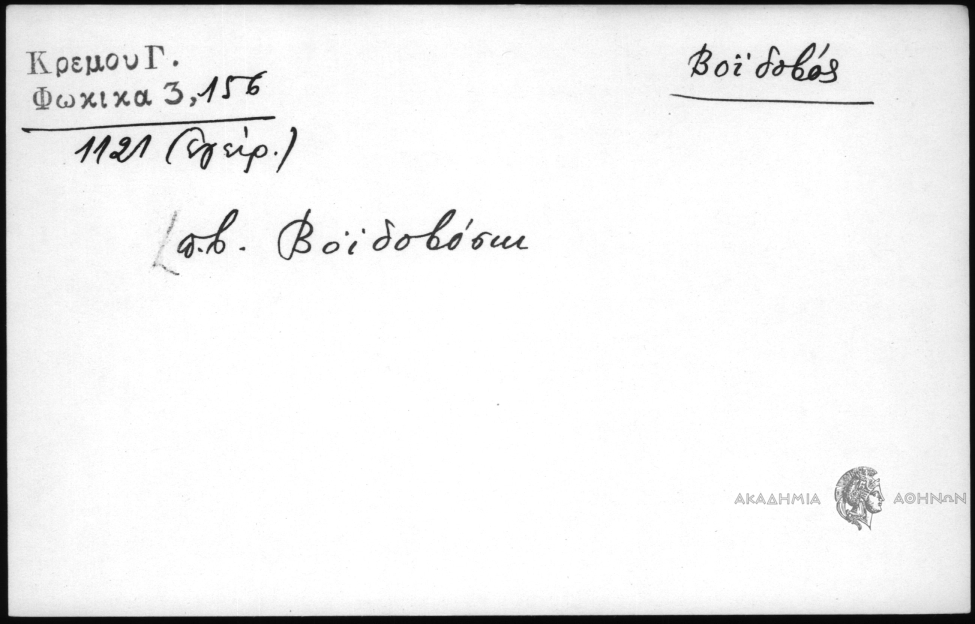 Κρεμου Γ.
Φωκικα 3, 156
Βοϊδοβός
1121 (Εγείρ.)
π.β. Βοϊδοβόσκι
ΑΚΑΔΗΜΙΑ ΑΘΗΝΩΝ